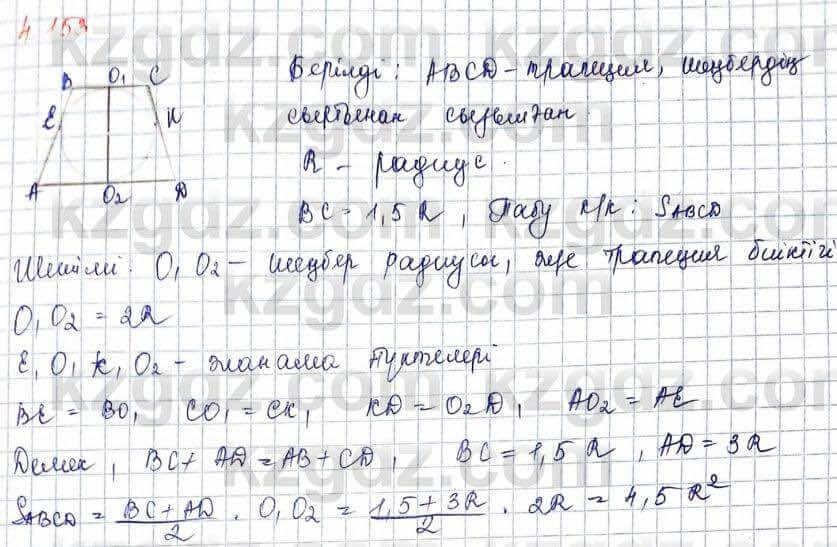 4.153
B O₁ C
E K
A O₂ D
Берілді: ABCD - трапеция, шеңбердің
сырттынан сызылған.
R - радиус.
BC = 1,5 R, Табу к/к: SABCD
Шешімі: O₁O₂ - шеңбер радиусы, әрі трапеция биіктігі
O₁O₂ = 2R
E, O₁, K, O₂ - жанама нүктелері
BE = BO₁, CO₁ = CK, KD = O₂D, AO₂ = AE
Демек, BC + AD = AB + CD, BC = 1,5 R, AD = 3R
SABCD = BC + AD / 2 · O₁O₂ = 1,5 + 3R / 2 · 2R = 4,5 R²
kzgdz.com